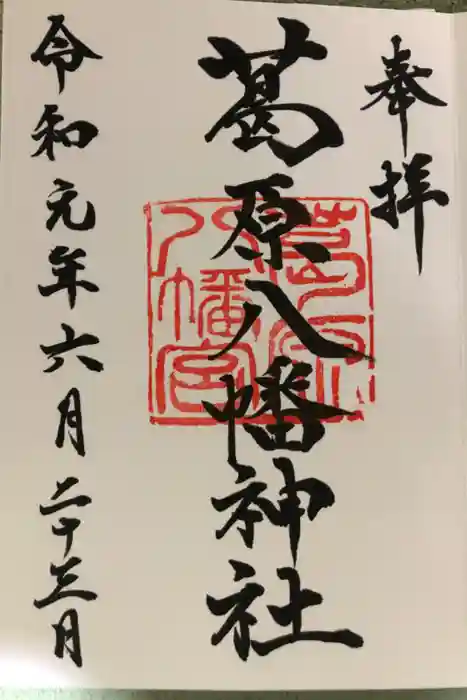 奉拝
葛原八幡神社
令和元年六月二十三日
葛原
八幡宮